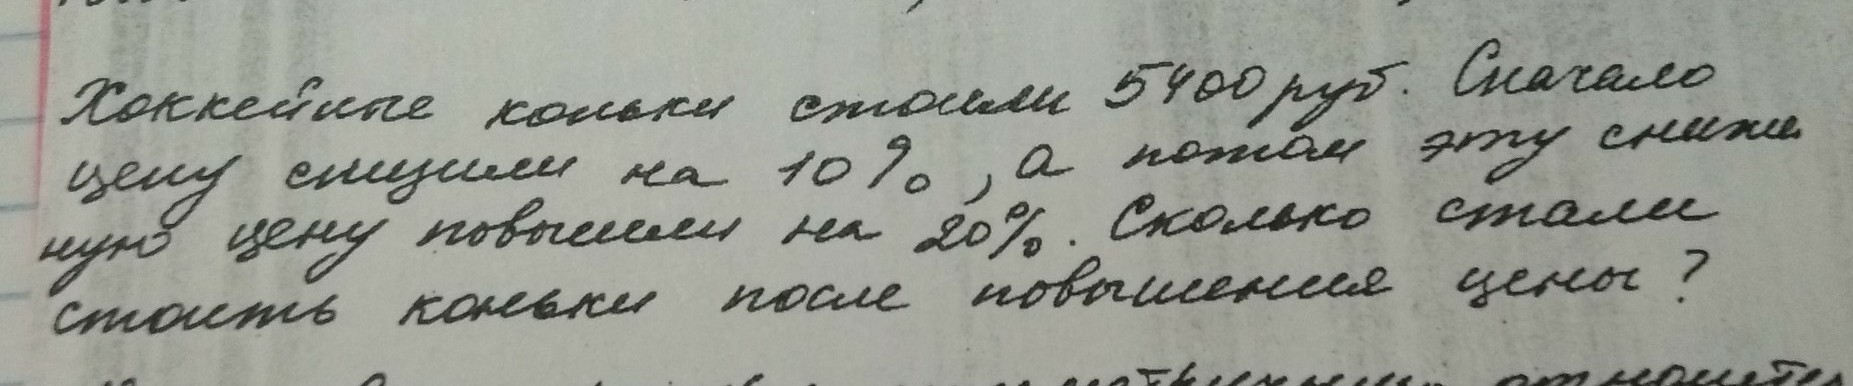 Хоккейные коньки стоили 5400 руб. Сначало
цену снизили на 10%, а потом эту снижен
ную цену повысили на 20%. Сколько стали
стоить коньки после повышения цены?